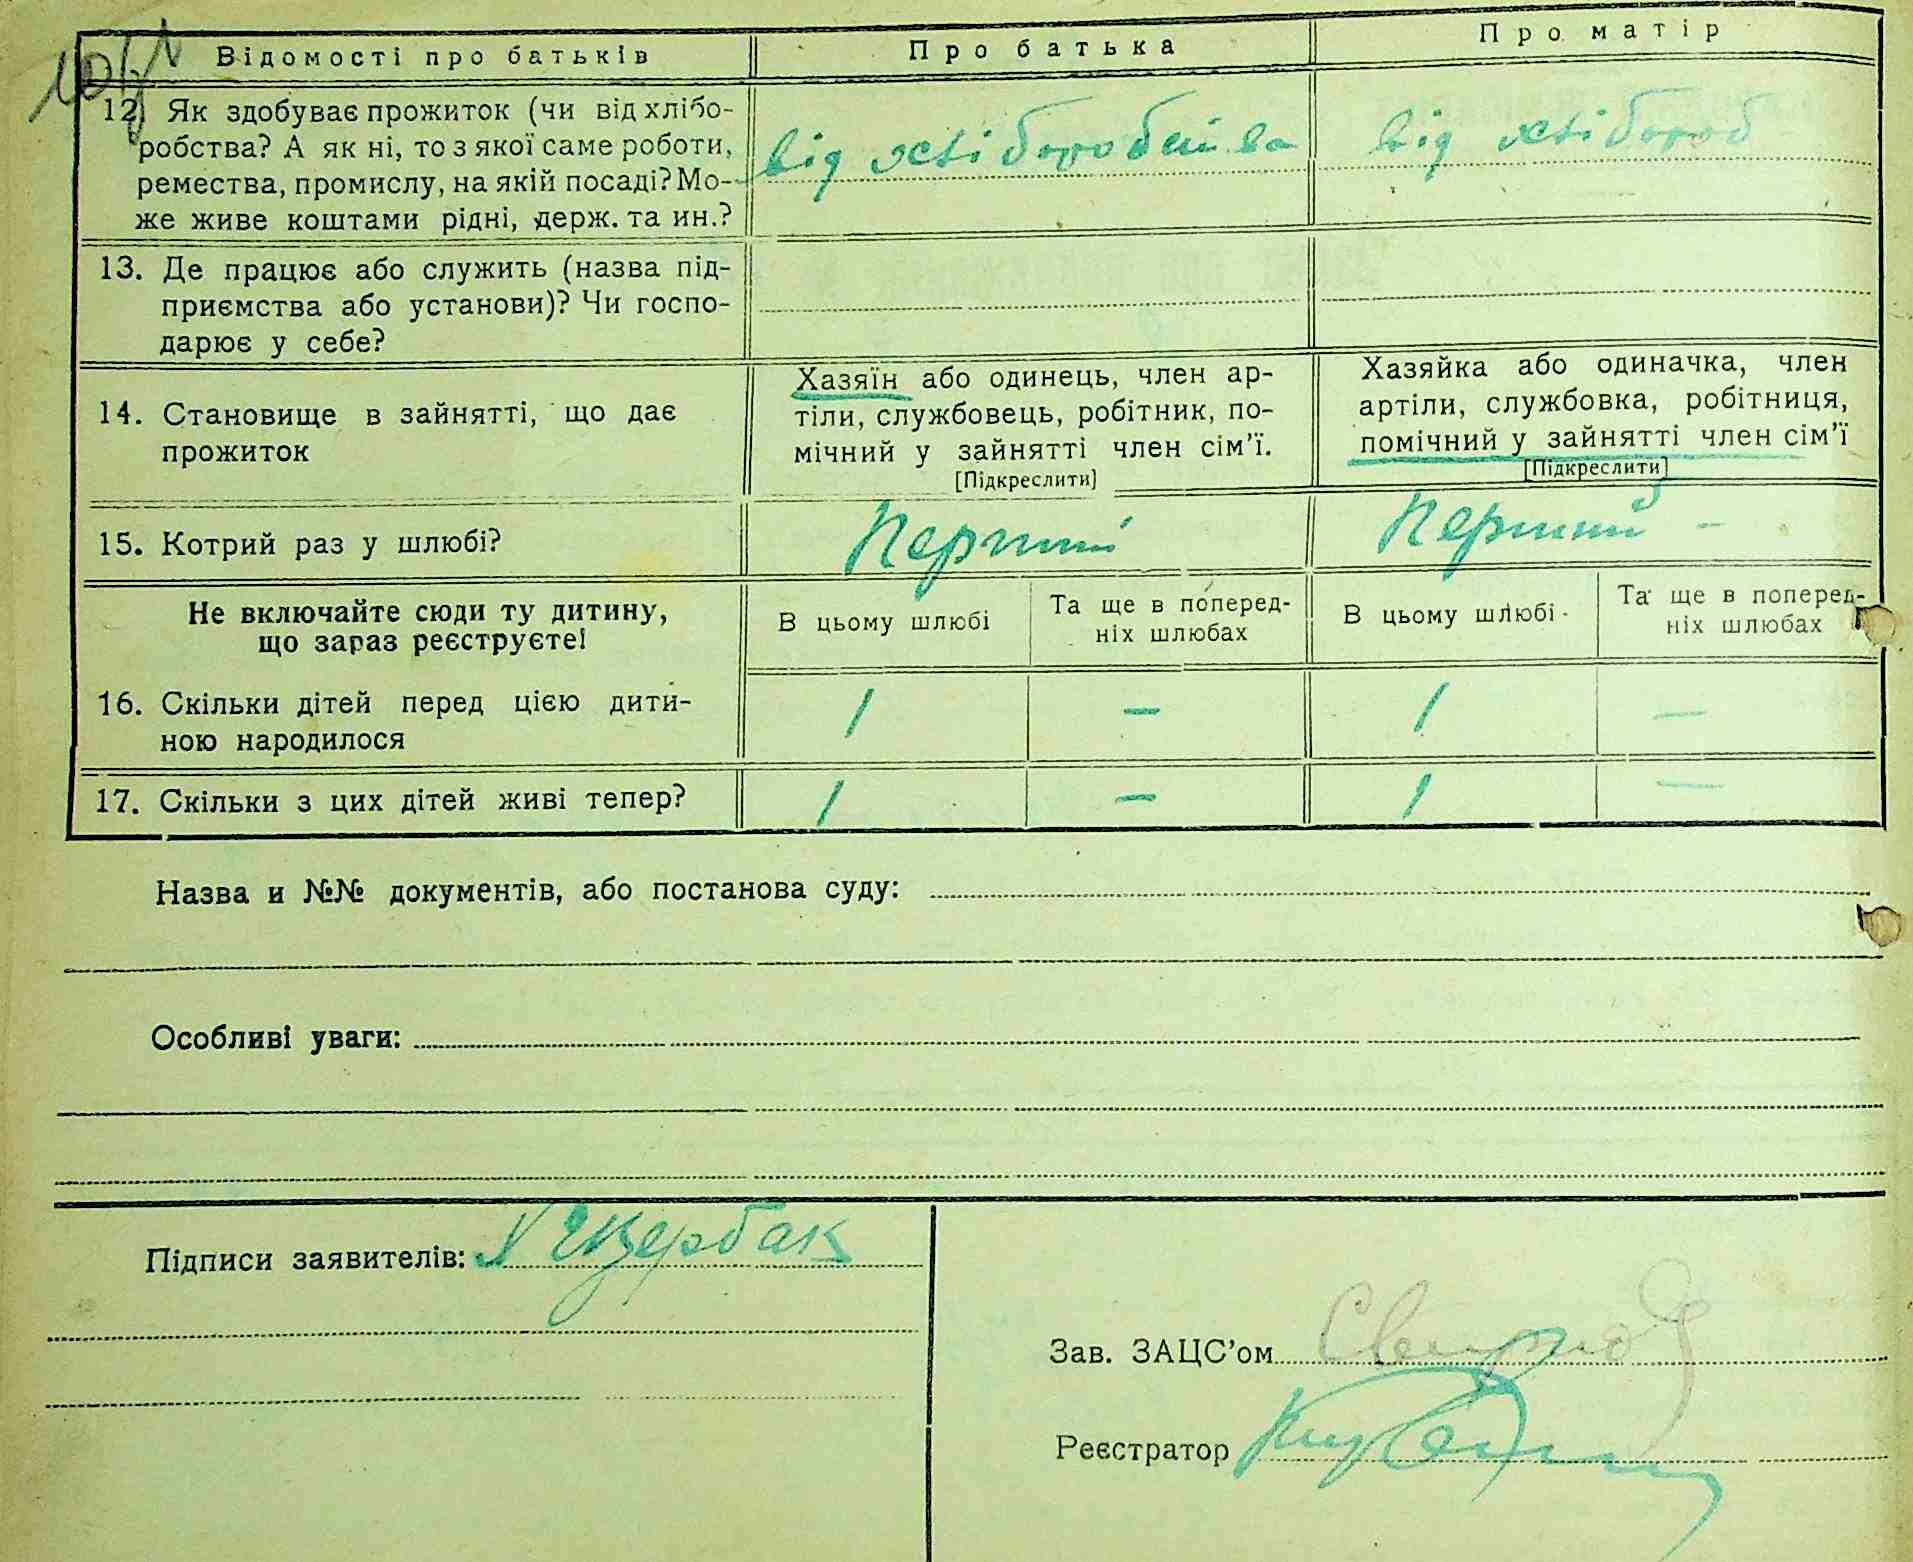 Відомості про батьків
Про батька
Про матір
12. Як здобуває прожиток (чи від хлібо-
робства? А як ні, то з якої саме роботи,
ремества, промислу, на якій посаді? Мо-
же живе коштами рідні, держ. та ин.?
від хліборобства
від хлібороб
13. Де працює або служить (назва під-
приємства або установи)? Чи госпо-
дарює у себе?
14. Становище в зайнятті, що дає
прожиток
Хазяїн або одинець, член ар-
тіли, службовець, робітник, по-
мічний у зайнятті член сім'ї.
[Підкреслити]
Хазяйка або одиначка, член
артіли, службовка, робітниця,
помічний у зайнятті член сім'ї
[Підкреслити]
15. Котрий раз у шлюбі?
Перший
Перший -
Не включайте сюди ту дитину,
що зараз реєструєте!
В цьому шлюбі
Та ще в поперед-
ніх шлюбах
В цьому шлюбі
Та ще в поперед-
ніх шлюбах
16. Скільки дітей перед цією дити-
ною народилося
1 — 1 —
17. Скільки з цих дітей живі тепер?
1 — 1 —
Назва и №№ документів, або постанова суду:
Особливі уваги:
Підписи заявителів: Щербак
Зав. ЗАЦС'ом
Реєстратор